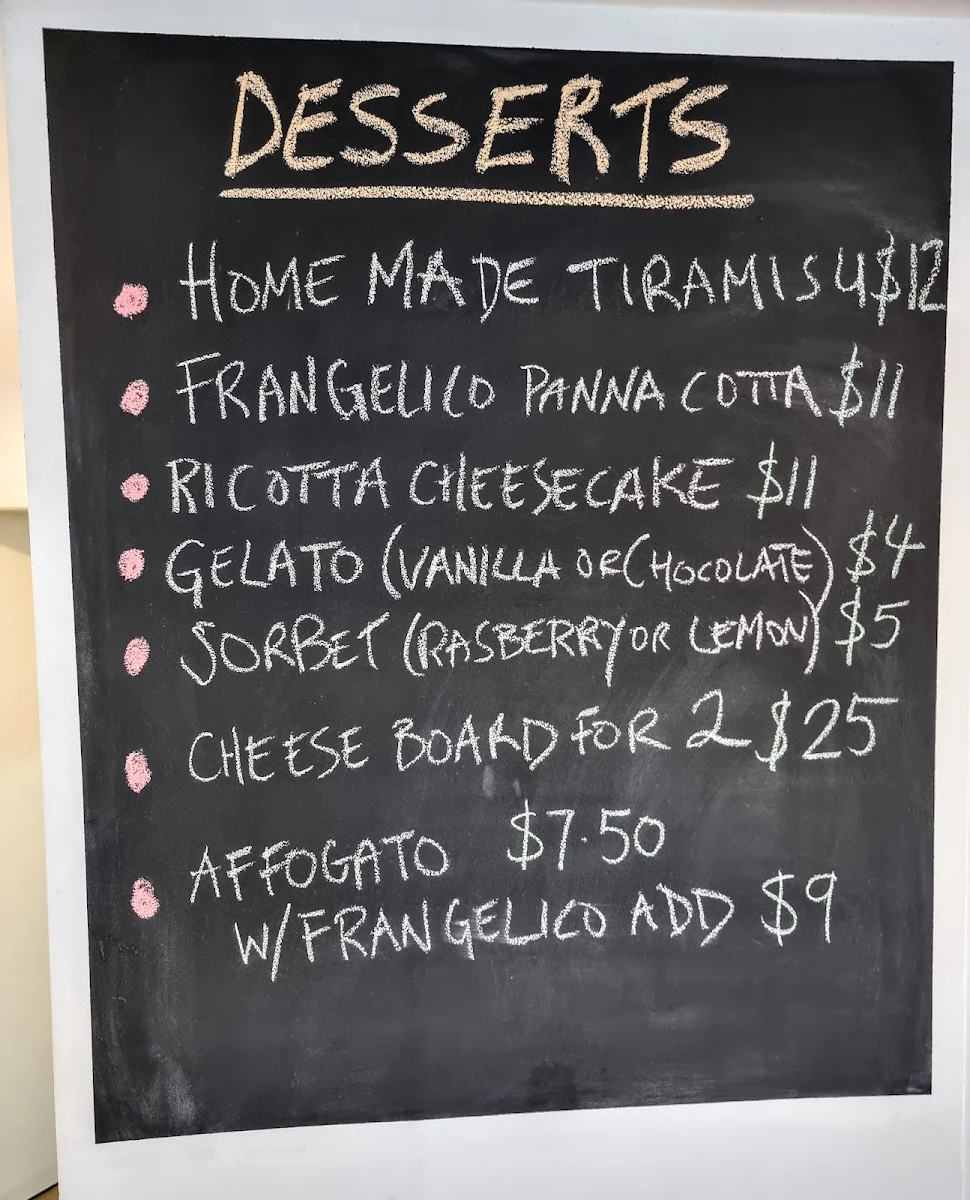 DESSERTS
HOME MADE TIRAMISU $12
FRANGELICO PANNA COTTA $11
RICOTTA CHEESECAKE $11
GELATO (VANILLA OR CHOCOLATE) $4
SORBET (RASBERRY OR LEMON) $5
CHEESE BOARD FOR 2 $25
AFFOGATO $7.50
W/FRANGELICO ADD $9